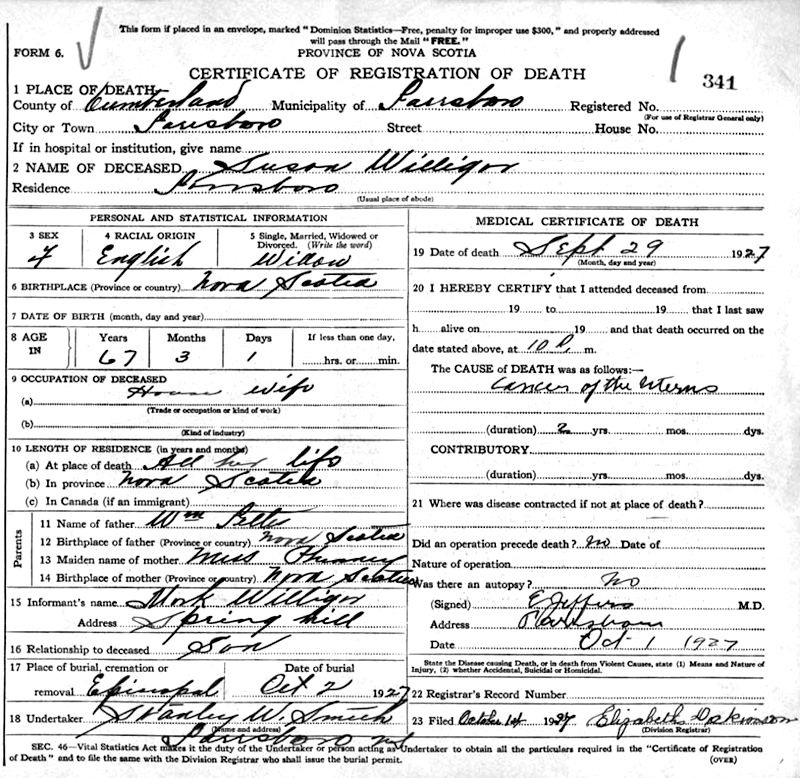 This form if placed in an envelope, marked "Dominion Statistics—Free, penalty for improper use $300," and properly addressed
will pass through the Mail "FREE."
FORM 6.
PROVINCE OF NOVA SCOTIA
CERTIFICATE OF REGISTRATION OF DEATH
341
1 PLACE OF DEATH
County of Cumberland Municipality of Parrsboro Registered No.
(For use of Registrar General only)
City or Town Parrsboro Street House No.
If in hospital or institution, give name
2 NAME OF DECEASED Susan Willigar
Residence Parrsboro
(Usual place of abode)
PERSONAL AND STATISTICAL INFORMATION
3 SEX 4 RACIAL ORIGIN 5 Single, Married, Widowed or
Divorced. (Write the word)
F English Widow
6 BIRTHPLACE (Province or country) Nova Scotia
7 DATE OF BIRTH (month, day and year)
8 AGE Years Months Days If less than one day,
IN 67 3 1 hrs. or min.
9 OCCUPATION OF DECEASED
(a) House wife
(Trade or occupation or kind of work)
(b)
(Kind of industry)
10 LENGTH OF RESIDENCE (in years and months)
(a) At place of death All her life
(b) In province Nova Scotia
(c) In Canada (if an immigrant)
Parents
11 Name of father Wm
12 Birthplace of father (Province or country) Nova Scotia
13 Maiden name of mother Miss
14 Birthplace of mother (Province or country) Nova Scotia
15 Informant's name Mark Willigar
Address Spring hill
16 Relationship to deceased Son
17 Place of burial, cremation or Date of burial
removal Episcopal Oct 2 1927
18 Undertaker Stanley W. Smith
(Name and address)
Parrsboro NS
MEDICAL CERTIFICATE OF DEATH
19 Date of death Sept 29 1927
(Month, day and year)
20 I HEREBY CERTIFY that I attended deceased from
19 to 19 that I last saw
h alive on 19 and that death occurred on the
date stated above, at 10 P. m.
The CAUSE of DEATH was as follows:—
Cancer of the Uterus
(duration) 2 yrs. mos. dys.
CONTRIBUTORY
(duration) yrs. mos. dys.
21 Where was disease contracted if not at place of death?
Did an operation precede death? No Date of
Nature of operation
Was there an autopsy? No
(Signed) E Jeffers M.D.
Address Parrsboro
Date Oct 1 1927
State the Disease causing Death, or in death from Violent Causes, state (1) Means and Nature of
Injury, (2) whether Accidental, Suicidal or Homicidal.
22 Registrar's Record Number
23 Filed October 1st 1927 Elizabeth
(Division Registrar)
SEC. 46—Vital Statistics Act makes it the duty of the Undertaker or person acting as Undertaker to obtain all the particulars required in the "Certificate of Registration
of Death" and to file the same with the Division Registrar who shall issue the burial permit. (OVER)